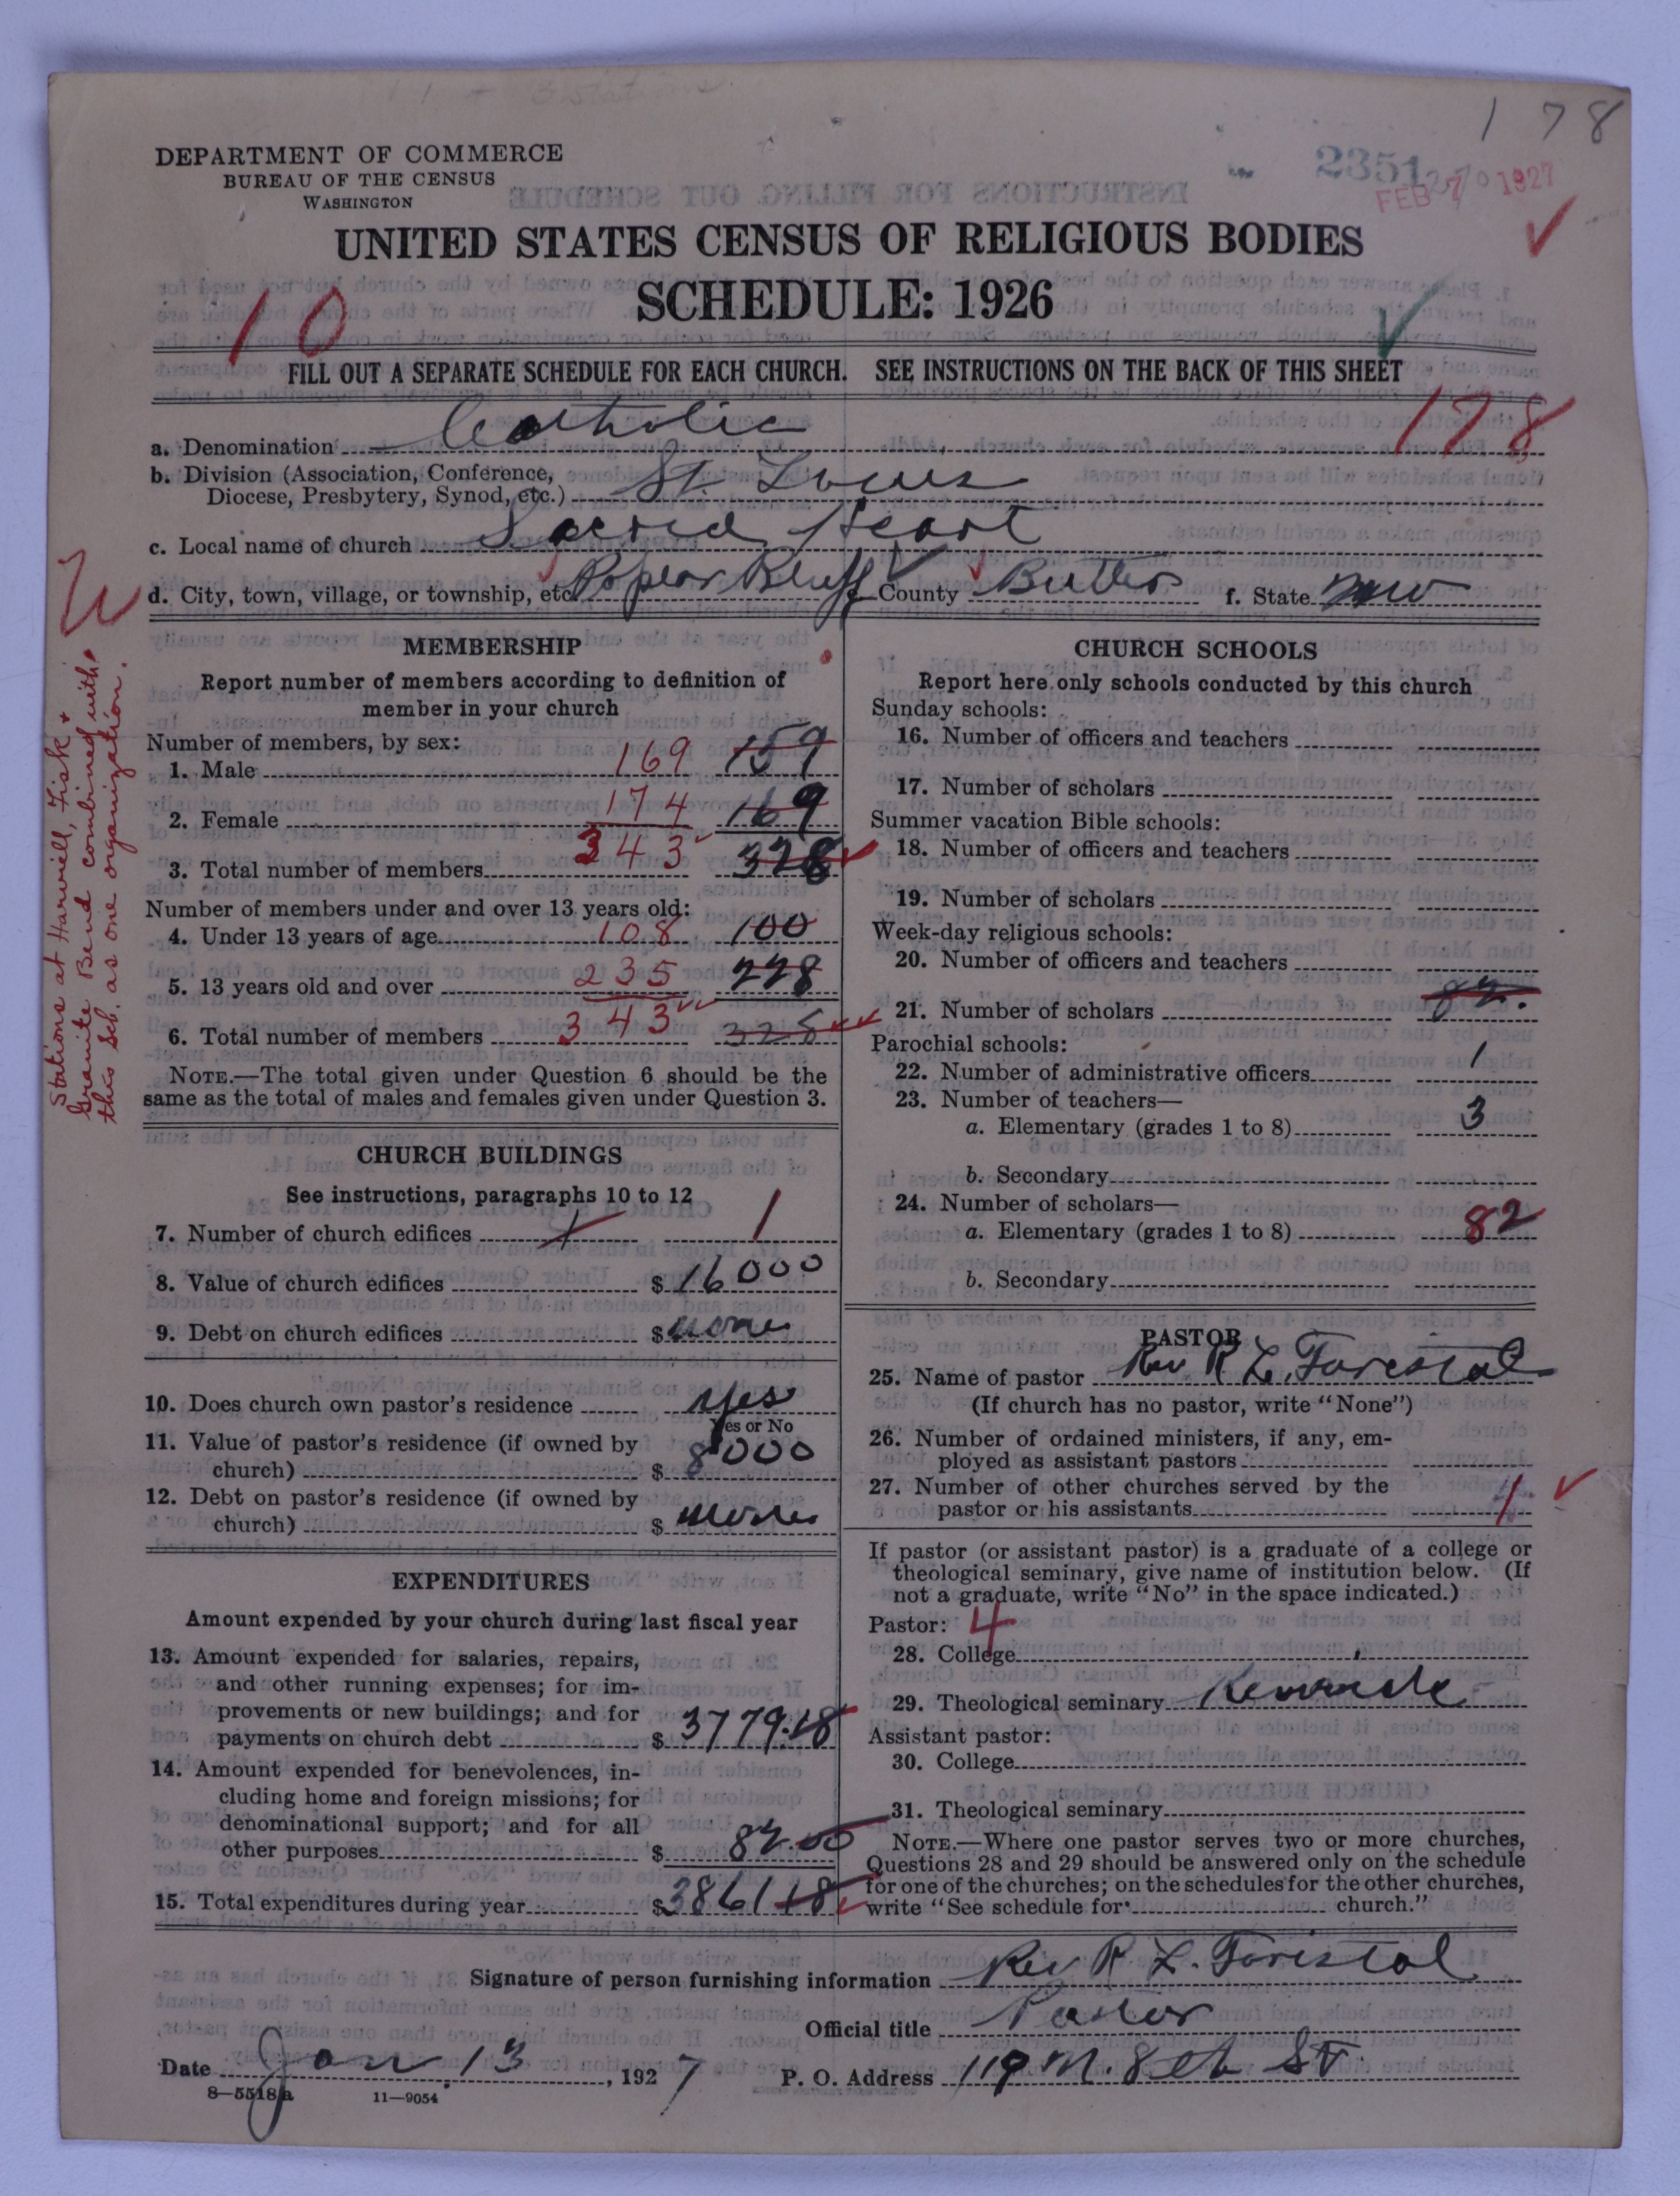 178
DEPARTMENT OF COMMERCE
BUREAU OF THE CENSUS
WASHINGTON
2351
FEB 7 1927
UNITED STATES CENSUS OF RELIGIOUS BODIES
SCHEDULE: 1926
10
FILL OUT A SEPARATE SCHEDULE FOR EACH CHURCH. SEE INSTRUCTIONS ON THE BACK OF THIS SHEET
178
a. Denomination Catholic
b. Division (Association, Conference,
Diocese, Presbytery, Synod, etc.) St. Louis
c. Local name of church Sacred Heart
d. City, town, village, or township, etc. Poplar Bluff e. County Butler f. State Mo
Stations at Harviell, Fisk &
Granite Bend combined with
this sch. as one organization.
MEMBERSHIP
Report number of members according to definition of
member in your church
Number of members, by sex:
1. Male 169 159
2. Female 174 169
3. Total number of members 343 328
Number of members under and over 13 years old:
4. Under 13 years of age 108 100
5. 13 years old and over 235 228
6. Total number of members 343 328
NOTE.—The total given under Question 6 should be the
same as the total of males and females given under Question 3.
CHURCH BUILDINGS
See instructions, paragraphs 10 to 12
7. Number of church edifices 1 1
8. Value of church edifices $ 16000
9. Debt on church edifices $ none
10. Does church own pastor's residence yes
Yes or No
11. Value of pastor's residence (if owned by
church) $ 8000
12. Debt on pastor's residence (if owned by
church) $ none
EXPENDITURES
Amount expended by your church during last fiscal year
13. Amount expended for salaries, repairs,
and other running expenses; for im-
provements or new buildings; and for
payments on church debt $ 3779.18
14. Amount expended for benevolences, in-
cluding home and foreign missions; for
denominational support; and for all
other purposes $ 82.00
15. Total expenditures during year $ 3861 18
CHURCH SCHOOLS
Report here only schools conducted by this church
Sunday schools:
16. Number of officers and teachers
17. Number of scholars
Summer vacation Bible schools:
18. Number of officers and teachers
19. Number of scholars
Week-day religious schools:
20. Number of officers and teachers
21. Number of scholars 82.
Parochial schools:
22. Number of administrative officers 1
23. Number of teachers—
a. Elementary (grades 1 to 8) 3
b. Secondary
24. Number of scholars—
a. Elementary (grades 1 to 8) 82
b. Secondary
PASTOR
25. Name of pastor Rev. R. L. Foristal
(If church has no pastor, write "None")
26. Number of ordained ministers, if any, em-
ployed as assistant pastors
27. Number of other churches served by the
pastor or his assistants
If pastor (or assistant pastor) is a graduate of a college or
theological seminary, give name of institution below. (If
not a graduate, write "No" in the space indicated.)
Pastor: 4
28. College
29. Theological seminary Kenrick
Assistant pastor:
30. College
31. Theological seminary
NOTE.—Where one pastor serves two or more churches,
Questions 28 and 29 should be answered only on the schedule
for one of the churches; on the schedules for the other churches,
write "See schedule for church."
Signature of person furnishing information Rev R. L. Foristal
Official title Pastor
Date Jan. 13, 1927 P. O. Address 119 N. 8th St.
8—5518a 11—9054